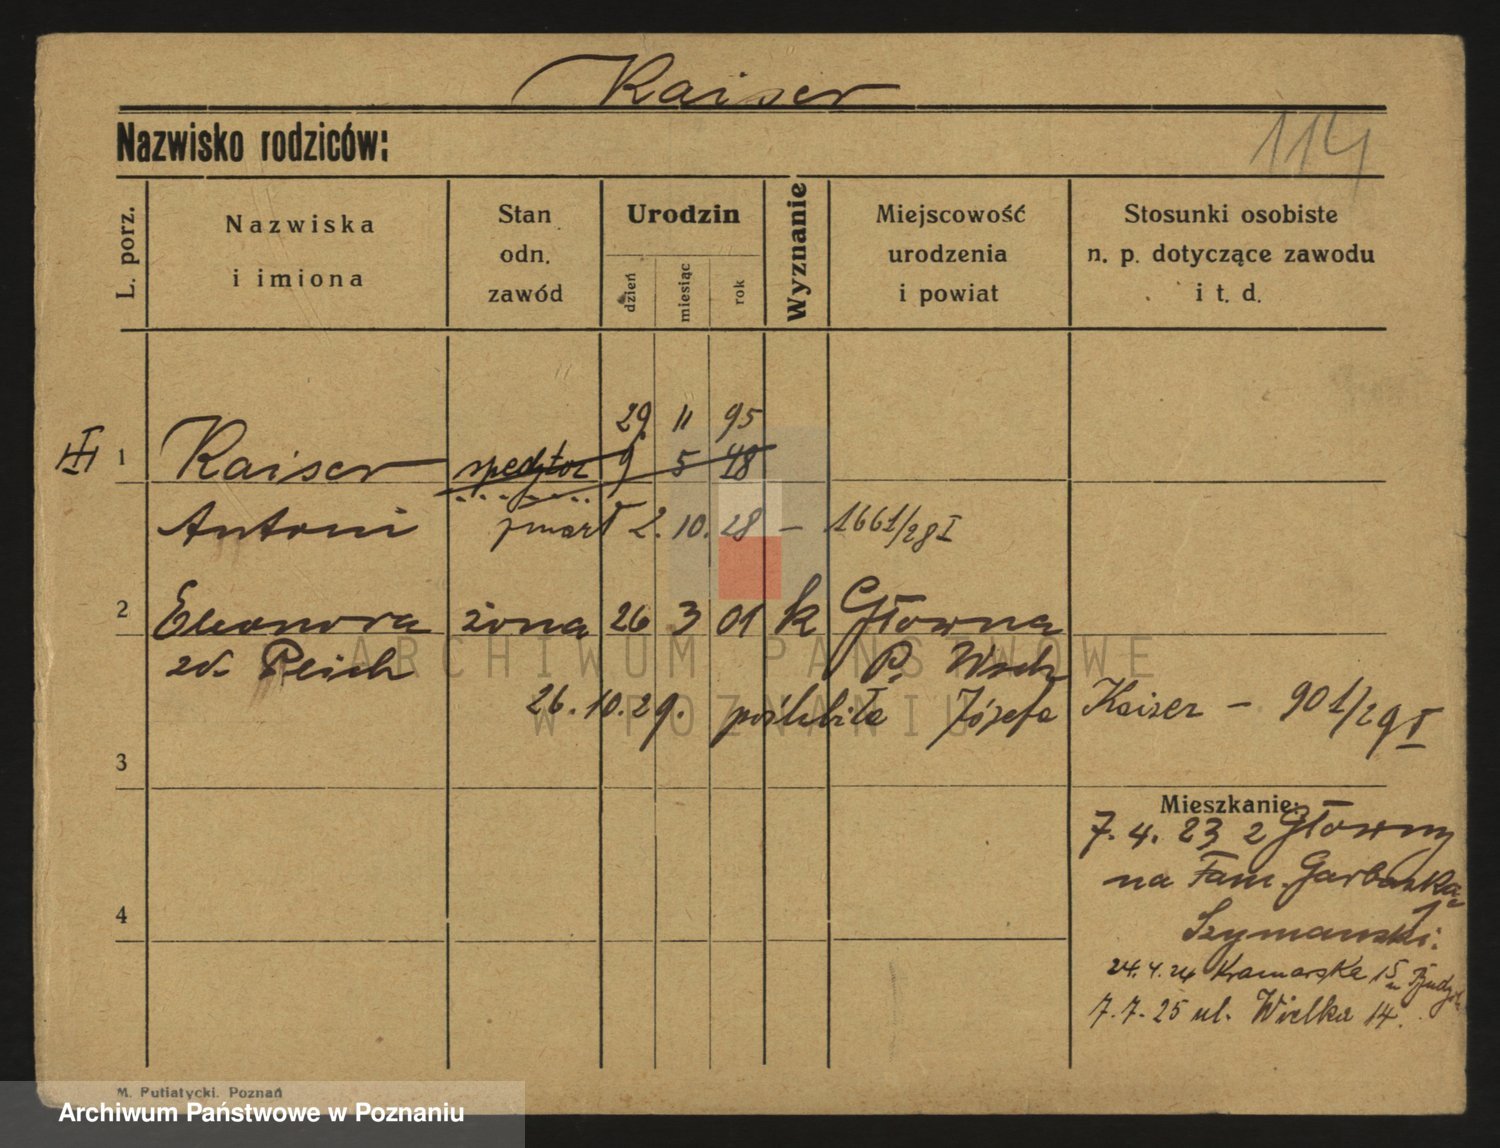 Kaiser
Nazwisko rodziców:
114
L. porz.
Nazwiska
i imiona
Stan
odn.
zawód
Urodzin
dzień
miesiąc
rok
Wyznanie
Miejscowość
urodzenia
i powiat
Stosunki osobiste
n. p. dotyczące zawodu
i t. d.
29. 11 95
III 1 Kaiser 9 5 48
Antoni zmarł 2. 10. 28 – 1661/28 I
2 Eleonora żona 26 3 01 k Głowna
zd. Reich P. Wsch
26.10.29. poślubiła Józefa Kaiser – 901/29 I
3
Mieszkanie:
7. 4. 23 z Głowny
na Tam. Garbarską
Szymański.
4
24.4.24 Kramarska 15
7.7.25 ul. Wielka 14.
M. Putiatycki. Poznań
ARCHIWUM PAŃSTWOWE
W POZNANIU
Archiwum Państwowe w Poznaniu